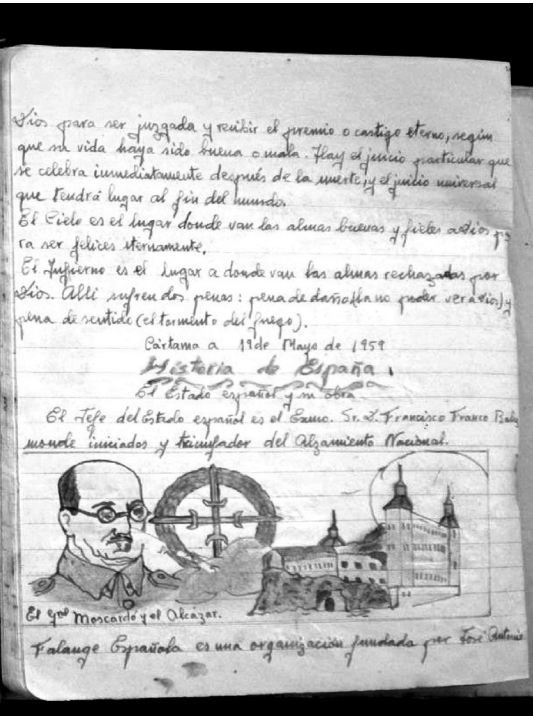 Dios para ser juzgada y recibir el premio o castigo eterno, según
que su vida haya sido buena o mala. Hay el juicio particular que
se celebra inmediatamente después de la muerte, y el juicio universal
que tendrá lugar al fin del mundo.
El Cielo es el lugar donde van las almas buenas y fieles a Dios pa
ra ser felices eternamente.
El Infierno es el lugar a donde van las almas rechazadas por
Dios. Alli sufren dos penas: pena de daño (la no poder ver a Dios) y
pena de sentido (el tormento del fuego).
Cártama a 19 de Mayo de 1959
Historia de España.
El Estado español y su obra
El Jefe del Estado español es el Excmo. Sr. D. Francisco Franco Baha
monde iniciados y triunfador del Alzamiento Nacional.
El gral Moscardó y el Alcázar.
Falange Española es una organización fundada por José Antonio